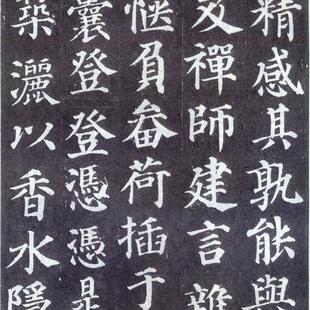 精感其孰能與
及禪師建言雜
愜負畚荷插于
囊登登憑憑是
築灑以香水隱